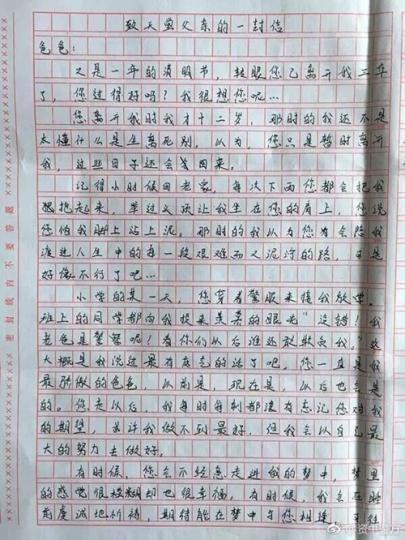 致天堂父亲的一封信
爸爸:
又是一年的清明节,转眼您已离开我三年
了,您过得好吗?我很想您呢…
您离开我时我才十二岁,那时的我还不是
太懂什么是生离死别,以为,您只是暂时离开
我,这些日子还会回来。
记得小时候回老家,每次下雨您都会把我
抱起来,举过头顶让我坐在您的肩上,您说
您怕我脚上沾上泥,那时的我以为您会陪我
渡过人生中的每一段艰难而又泥泞的路,可是
好像不行了吧…
小学的某一天,您穿着警服来接我放学,
班上的同学都向我投来羡慕的眼光“没错!我
老爸是警察呢!看你们从后谁还敢欺负我!”这
大概是我说过最有底气的话了吧。您一直是我
最骄傲的爸爸,从前是,现在是,以后也会是
的。您走以后,我每时每刻都没有忘记您对我
的期望,或许我做不到最好,但我会以自己最
大的努力去做好。
有时候,您会不经意走进我的梦中,梦里
的感觉很模糊却也很幸福,有时候,我会在
虔诚地祈祷,期待能在梦中与您相逢,
密封线内不要答题